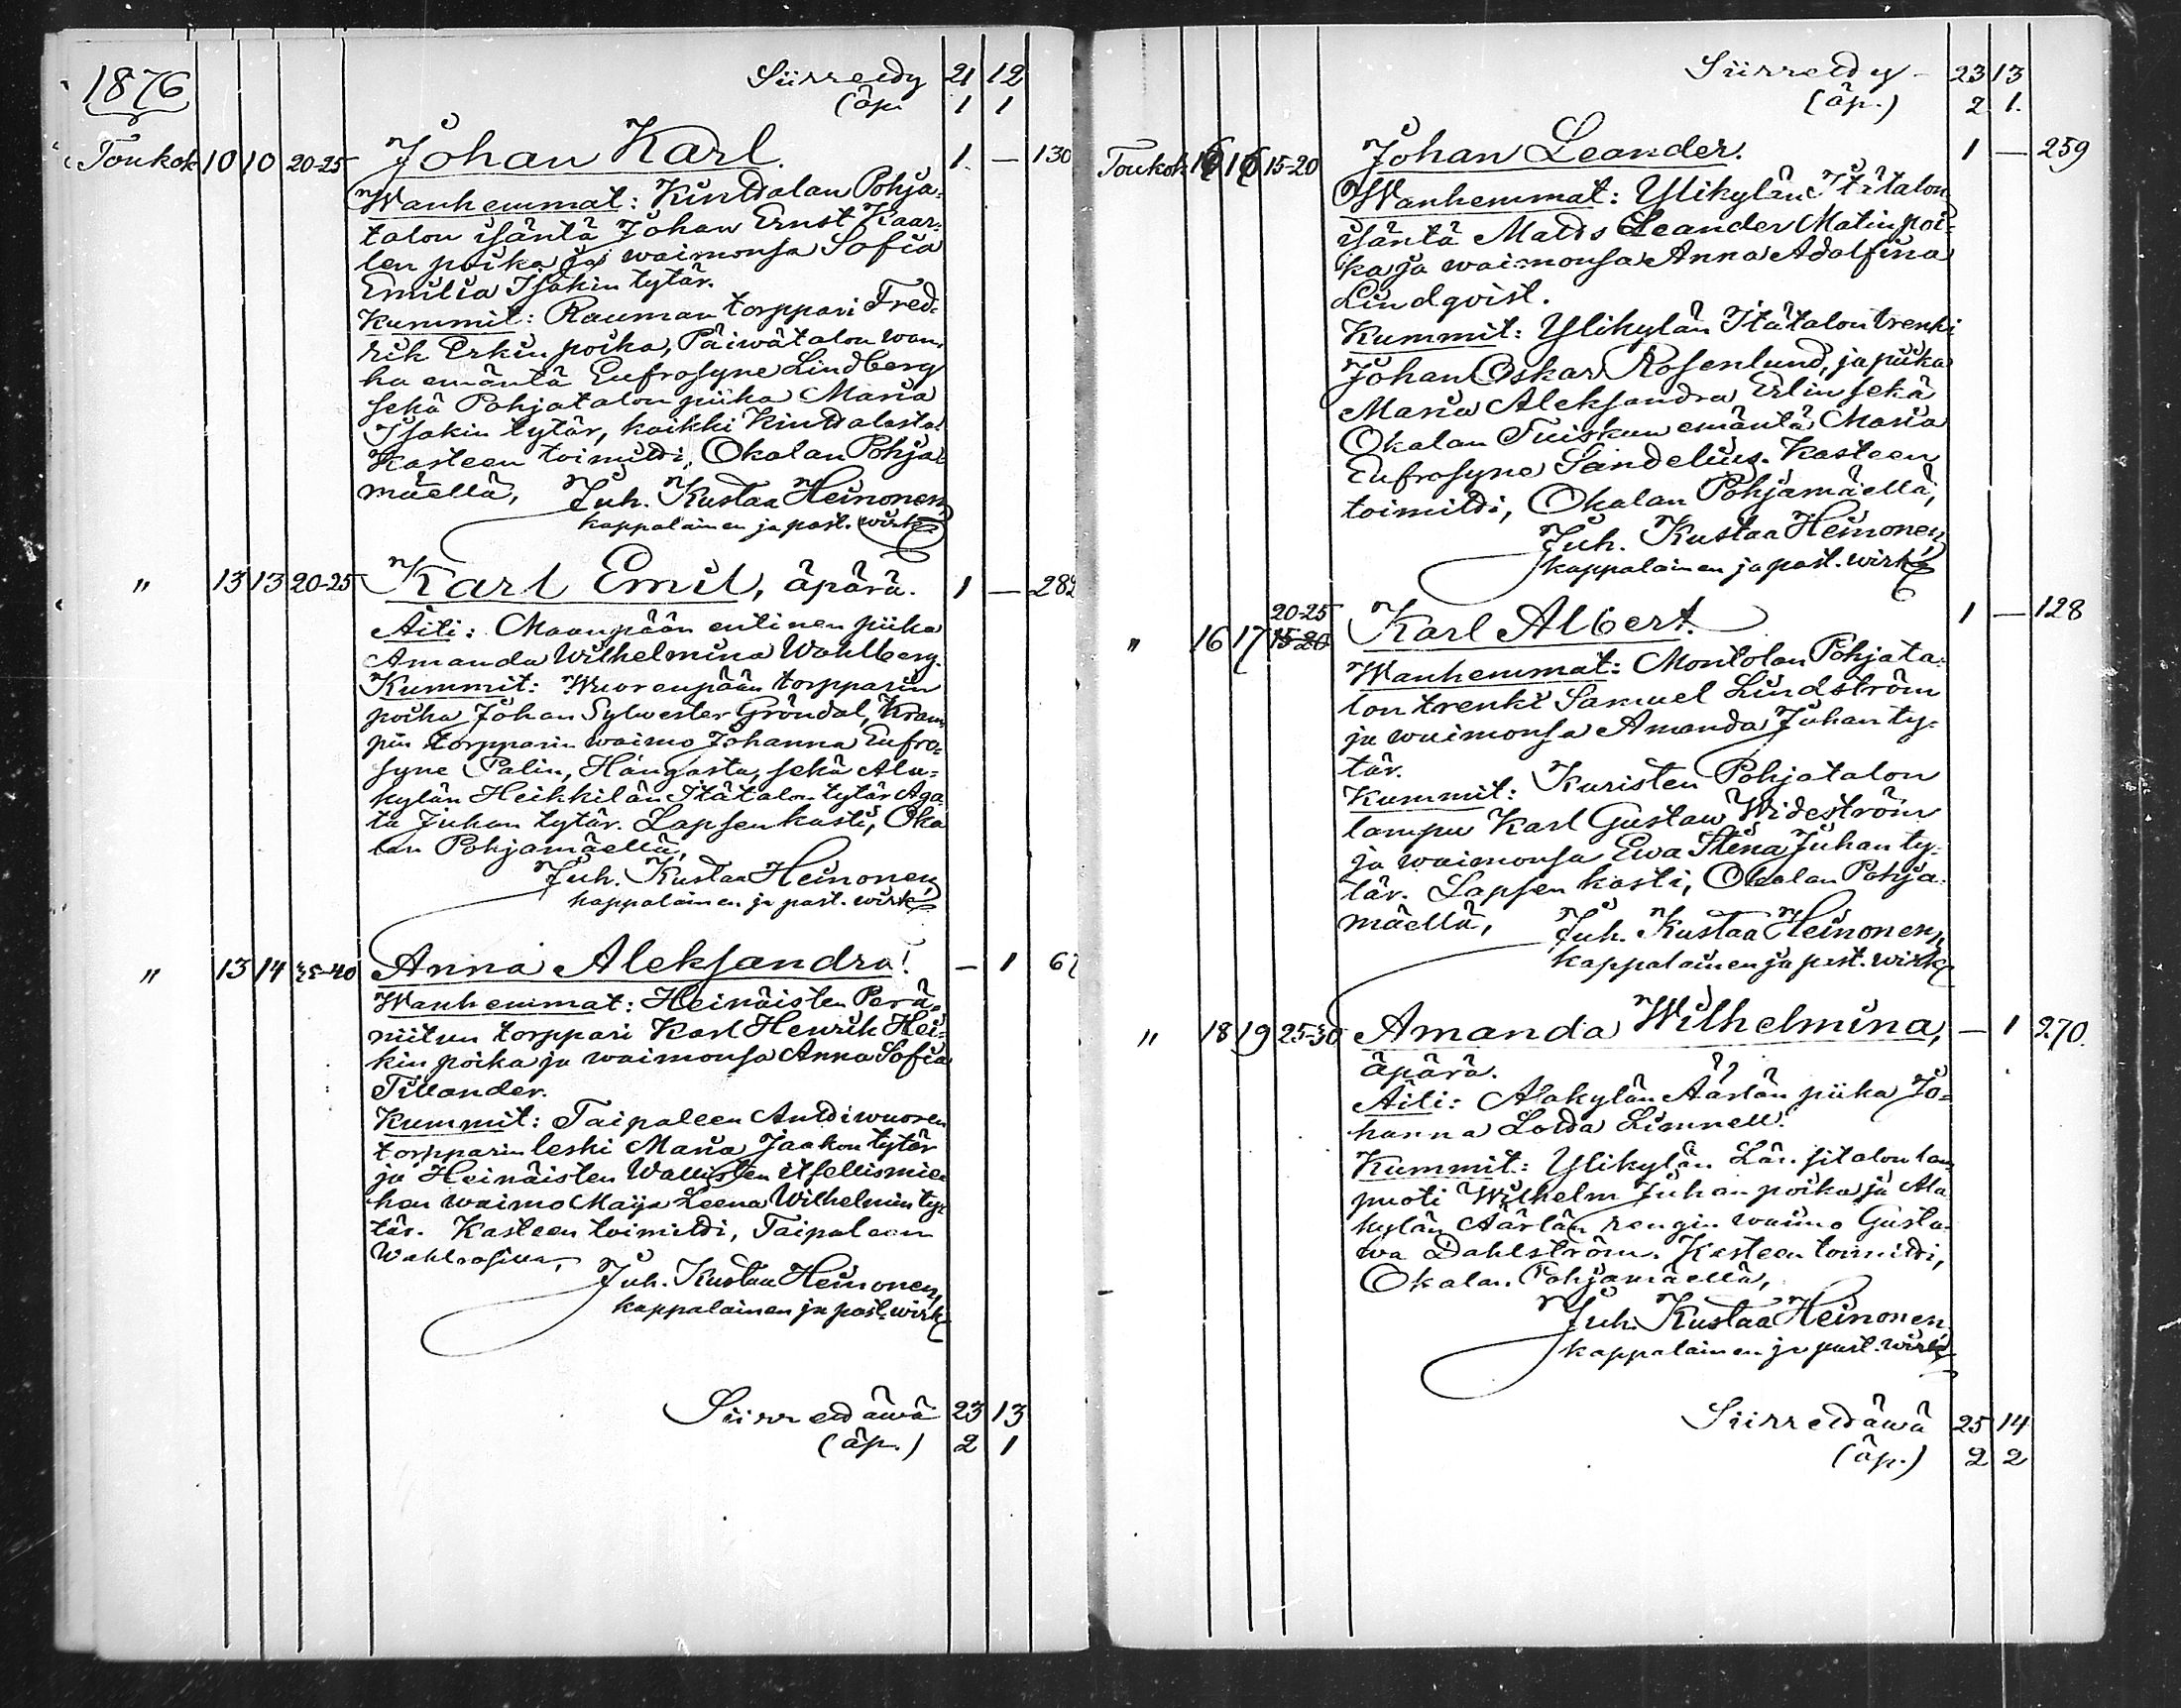 1876
Siirretty 21 12
(äp. 1 1
Toukok 10 10 20-25 Johan Karl. 1 — 130
Wanhemmat: Kinttalan Pohja-
talon isäntä Johan Ernst Kaar-
len poika ja waimonsa Sofia
Emilia Isakin tytär.
Kummit: Rauman torppari Fred-
rik Erkin poika, Päiwätalon wan-
ha emäntä Eufrosyne Lindberg
sekä Pohjatalon piika Maria
Isakin tytär, kaikki Kinttalasta.
Kasteen toimitti, Okalan Pohja-
mäellä, Juh. Kustaa Heinonen,
kappalainen ja past. wirk.
" 13 13 20-25 Karl Emil, äpärä. 1 — 282
Äiti: Maanpään entinen piika
Amanda Wilhelmina Wahlberg.
Kummit: Wuorenpään torpparin
poika Johan Sylwester Gröndal, Kram-
pin torpparin waimo Johanna Eufro-
syne Palin, Hangasta, sekä Ala-
kylän Heikkilän Itätalon tytär Aga-
ta Juhan tytär. Lapsen kasti, Oka
lan Pohjamäellä,
Juh. Kustaa Heinonen,
kappalainen ja past. wirk.
" 13 14 35-40 Anna Aleksandra. — 1 67
Wanhemmat: Heinäisten Perä-
niitun torppari Karl Henrik Hei-
kin poika ja waimonsa Anna Sofia
Tillander.
Kummit: Taipaleen Anttiwuoren
torpparin leski Maria Jaakon tytär
ja Heinäisten Wallisten itsellismie-
hen waimo Maija Leena Wilhelmin ty-
tär. Kasteen toimitti, Taipaleen
Juh. Kustaa Heinonen,
kappalainen ja past. wirk.
Siirrettäwä 23 13
(äp.) 2 1
Siirretty 23 13
(äp.) 2 1.
Toukok 16 16 15-20 Johan Leander. 1 — 259
Wanhemmat: Ylikylän Itätalon
isäntä Matts Leander Matin poi-
ka ja waimonsa Anna Adolfina
Lindqvist.
Kummit: Ylikylän Itätalon trenki
Johan Oskar Rosenlund, ja piika
Maria Aleksandra Erlin sekä
Okalan Tuiskun emäntä Maria
Eufrosyne Sandelius. Kasteen
toimitti, Okalan Pohjamäellä,
Juh. Kustaa Heinonen,
kappalainen ja past. wirk.
20-25
" 16 17 15-20 Karl Albert. 1 — 128
Wanhemmat: Montolan Pohjata-
lon trenki Samuel Lindström
ja waimonsa Amanda Juhan ty-
tär.
Kummit: Kuristen Pohjatalon
lampu Karl Gustaw Wideström
ja waimonsa Ewa Stena Juhan ty-
tär. Lapsen kasti, Okalan Pohja-
mäellä, Juh. Kustaa Heinonen,
kappalainen ja past. wirk.
" 18 19 25-30 Amanda Wilhelmina, — 1 270.
äpärä.
Äiti: Alakylän Äärlän piika Jo-
hanna Lovisa Limnell.
Kummit: Ylikylän Länsitalon lam-
puoti Wilhelm Juhan poika ja Ala
kylän Äärlän rengin waimo Gusta-
wa Dahlström. Kasteen toimitti,
Okalan Pohjamäellä,
Juh. Kustaa Heinonen
kappalainen ja past. wirk.
Siirrettäwä 25 14
(äp.) 2 2